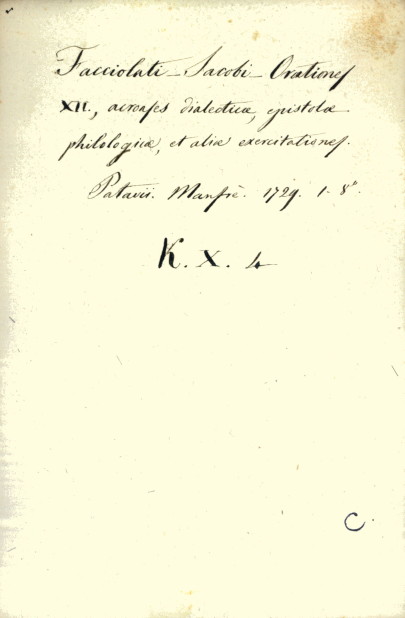 Facciolati Jacobi Orationes
XII., acroases dialecticæ, epistolæ
philologicæ, et aliæ exercitationes.
Patavii. Manfrè. 1729. 1. 8°.
K. X. 4
C.